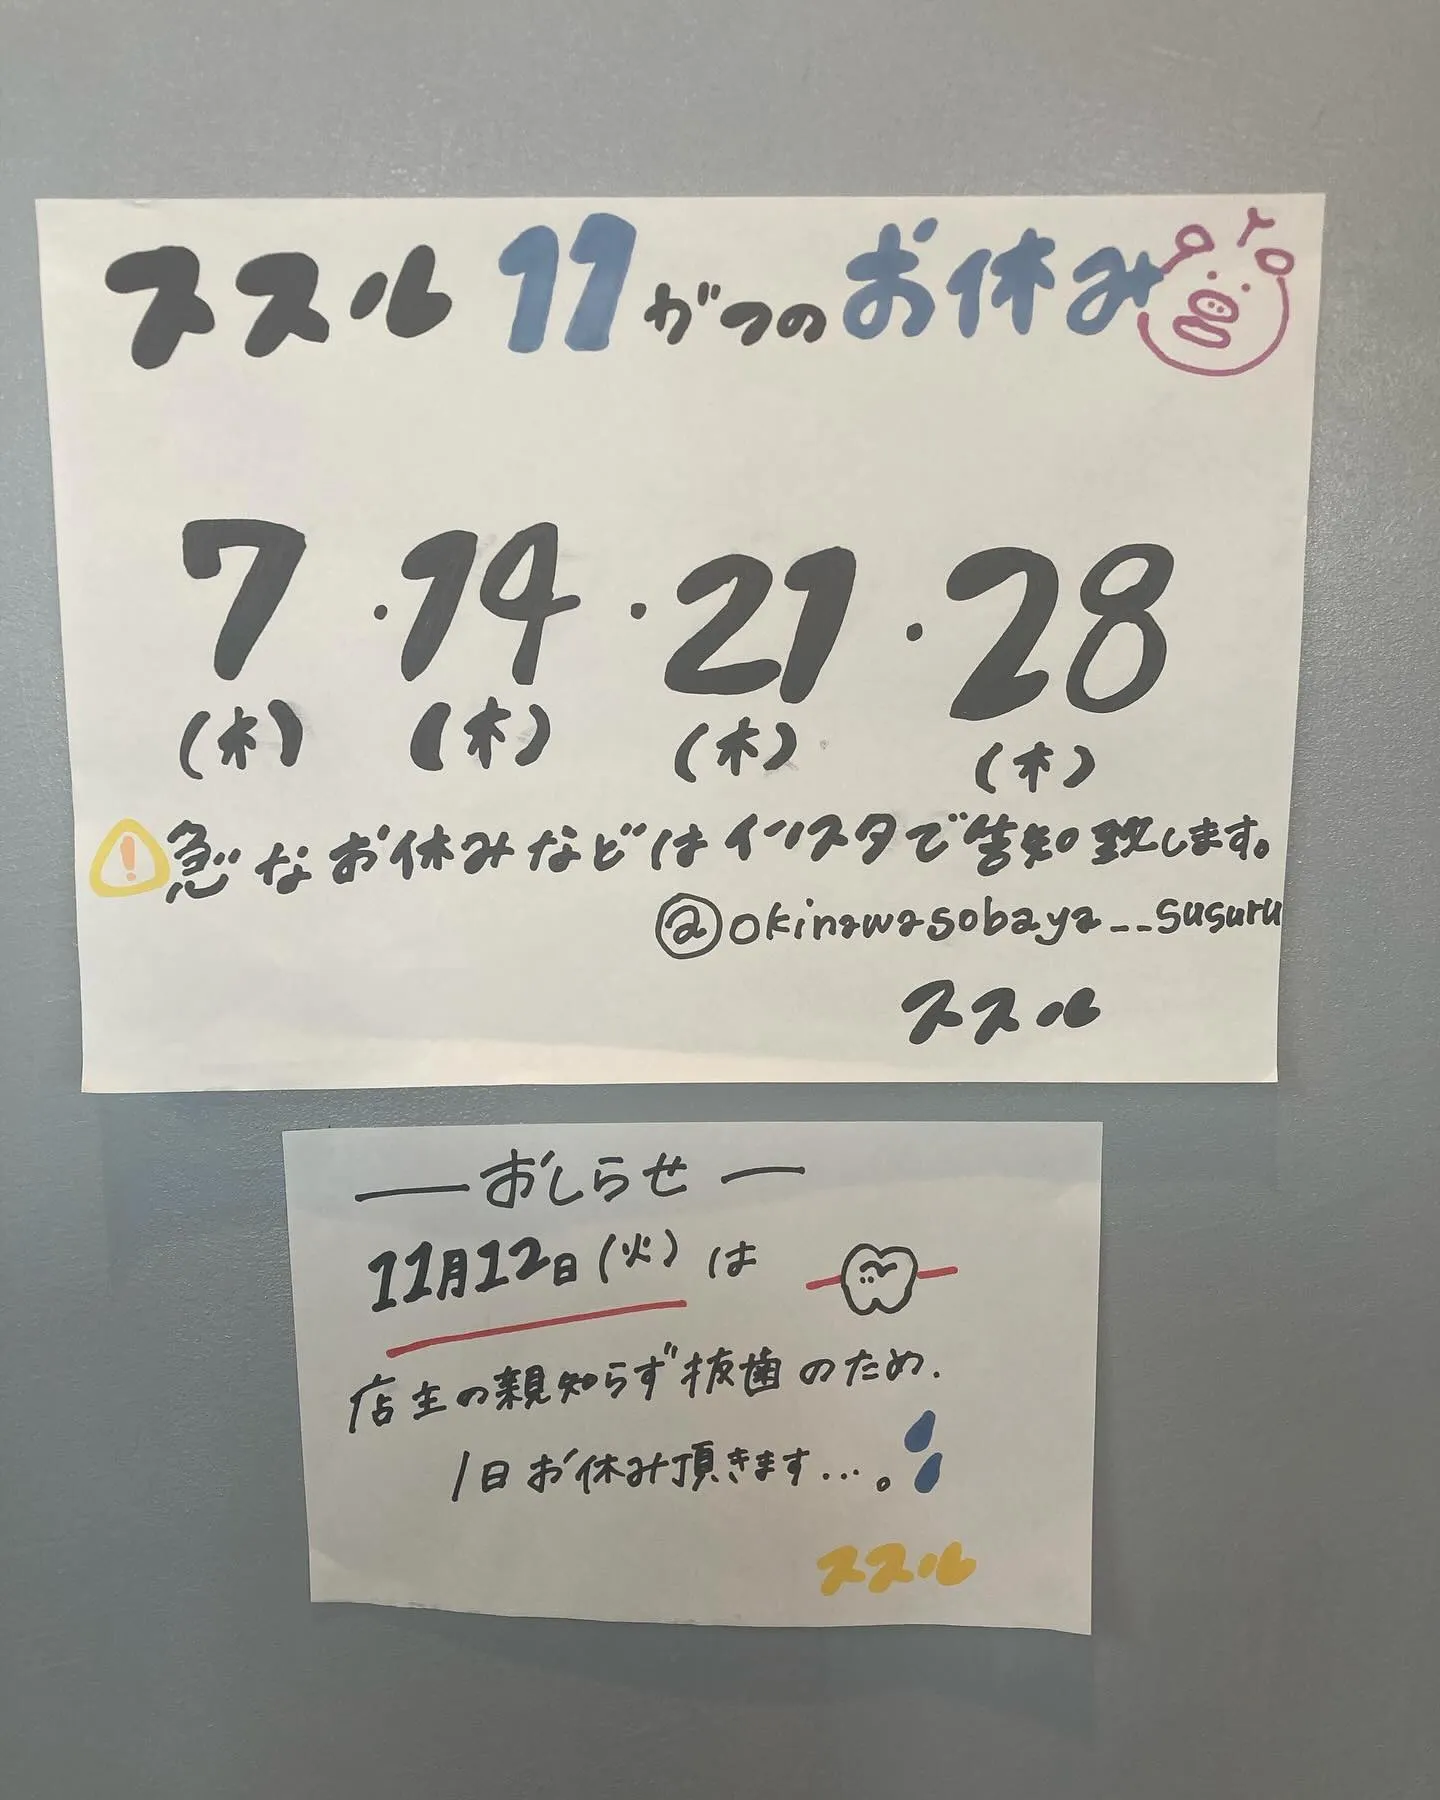 ススル 11がつのお休み
7・14・21・28
(木) (木) (木) (木)
急なお休みなどはインスタで告知致します。
@okinawasobaya__susuru
ススル
おしらせ
11月12日(火)は
店主の親知らず抜歯のため、
1日お休み頂きます...。
ススル